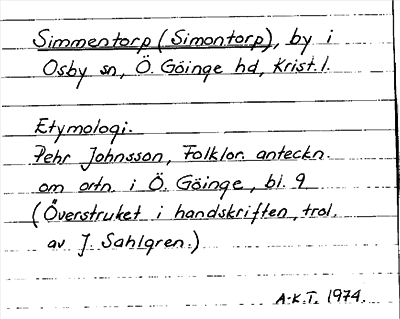 Simmentorp (Simontorp), by i
Osby sn, Ö. Göinge hd, Krist. l.
Etymologi.
Pehr Johnsson, Folklor. anteckn.
om ortn. i Ö. Göinge, bl. 9
(Överstruket i handskriften, trol.
av J. Sahlgren.)
A-K.T. 1974.